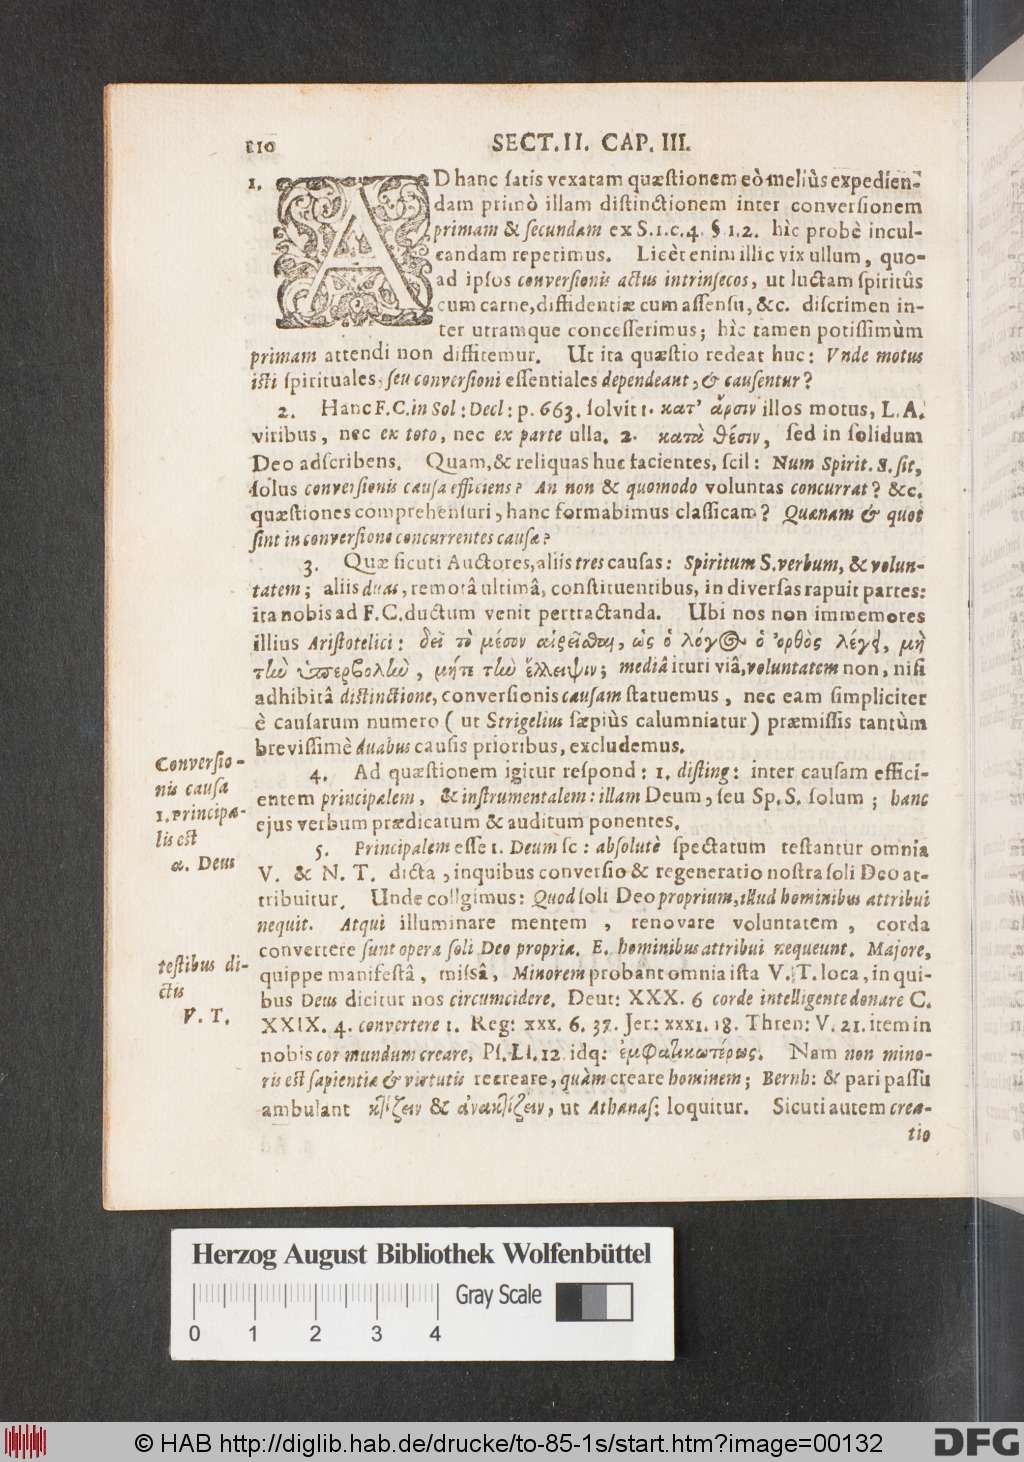 110 SECT. II. CAP. III.
1. AD hanc satis vexatam quæstionem eò meliùs expedien-
dam primò illam distinctionem inter conversionem
primam & secundam ex S. 1. c. 4. §. 1. 2. hîc probè incul-
candam reperimus. Licèt enim illic vix ullum, quo-
ad ipsos conversionis actus intrinsecos, ut luctam spiritûs
cum carne, diffidentiæ cum assensu, &c. discrimen in-
ter utramque concesserimus; hîc tamen potissimùm
primam attendi non diffitemur. Ut ita quæstio redeat huc: Vnde motus
isti spirituales, seu conversioni essentiales dependeant, & causentur?
2. Hanc F. C. in Sol: Decl: p. 663. solvit 1. κατ' ἄρσιν illos motus, L. A.
viribus, nec ex toto, nec ex parte ulla. 2. κατὰ θέσιν, sed in solidum
Deo adscribens. Quam, & reliquas huc facientes, scil: Num Spirit. S. sit,
solus conversionis causa efficiens? An non & quomodo voluntas concurrat? &c.
quæstiones comprehensuri, hanc formabimus classicam? Quænam & quot
sint in conversione concurrentes causæ?
3. Quæ sicuti Auctores, aliis tres causas: Spiritum S. verbum, & volun-
tatem; aliis duas, remotâ ultimâ, constituentibus, in diversas rapuit partes:
ita nobis ad F. C. ductum venit pertractanda. Ubi nos non immemores
illius Aristotelici: δεῖ τὸ μέσον αἱρεῖσθαι, ὡς ὁ λόγος ὁ ὀρθὸς λέγει, μὴ
τὴν ὑπερβολὴν, μήτε τὴν ἔλλειψιν; mediâ ituri viâ, voluntatem non, nisi
adhibitâ distinctione, conversionis causam statuemus, nec eam simpliciter
è causarum numero (ut Strigelius sæpiùs calumniatur) præmissis tantùm
brevissimè duabus causis prioribus, excludemus.
4. Ad quæstionem igitur respond: 1. disting: inter causam effici-
entem principalem, & instrumentalem: illam Deum, seu Sp. S. solum; hanc
ejus verbum prædicatum & auditum ponentes.
Conversio-
nis causa
1. Principa-
lis est
α. Deus
5. Principalem esse 1. Deum sc: absolutè spectatum testantur omnia
V. & N. T. dicta, in quibus conversio & regeneratio nostra soli Deo at-
tribuitur. Unde colligimus: Quod soli Deo proprium, illud hominibus attribui
nequit. Atqui illuminare mentem, renovare voluntatem, corda
convertere sunt opera soli Deo propria. E. hominibus attribui nequeunt. Majore,
quippe manifestâ, missâ, Minorem probant omnia ista V. T. loca, in qui-
bus Deus dicitur nos circumcidere. Deut: XXX. 6 corde intelligente donare C.
XXIX. 4. convertere 1. Reg: xxx. 6. 37. Jer: xxxI. 18. Thren: V. 21. item in
nobis cor mundum creare, Ps. LI. 12. idq: ἐμφατικωτέρως. Nam non mino-
ris est sapientiæ & virtutis recreare, quàm creare hominem; Bernh: & pari passu
ambulant κτίζειν & ἀνακτίζειν, ut Athanas: loquitur. Sicuti autem crea-
tio
testibus di-
ctis
V. T.
Herzog August Bibliothek Wolfenbüttel
Gray Scale
0 1 2 3 4
© HAB http://diglib.hab.de/drucke/to-85-1s/start.htm?image=00132
DFG